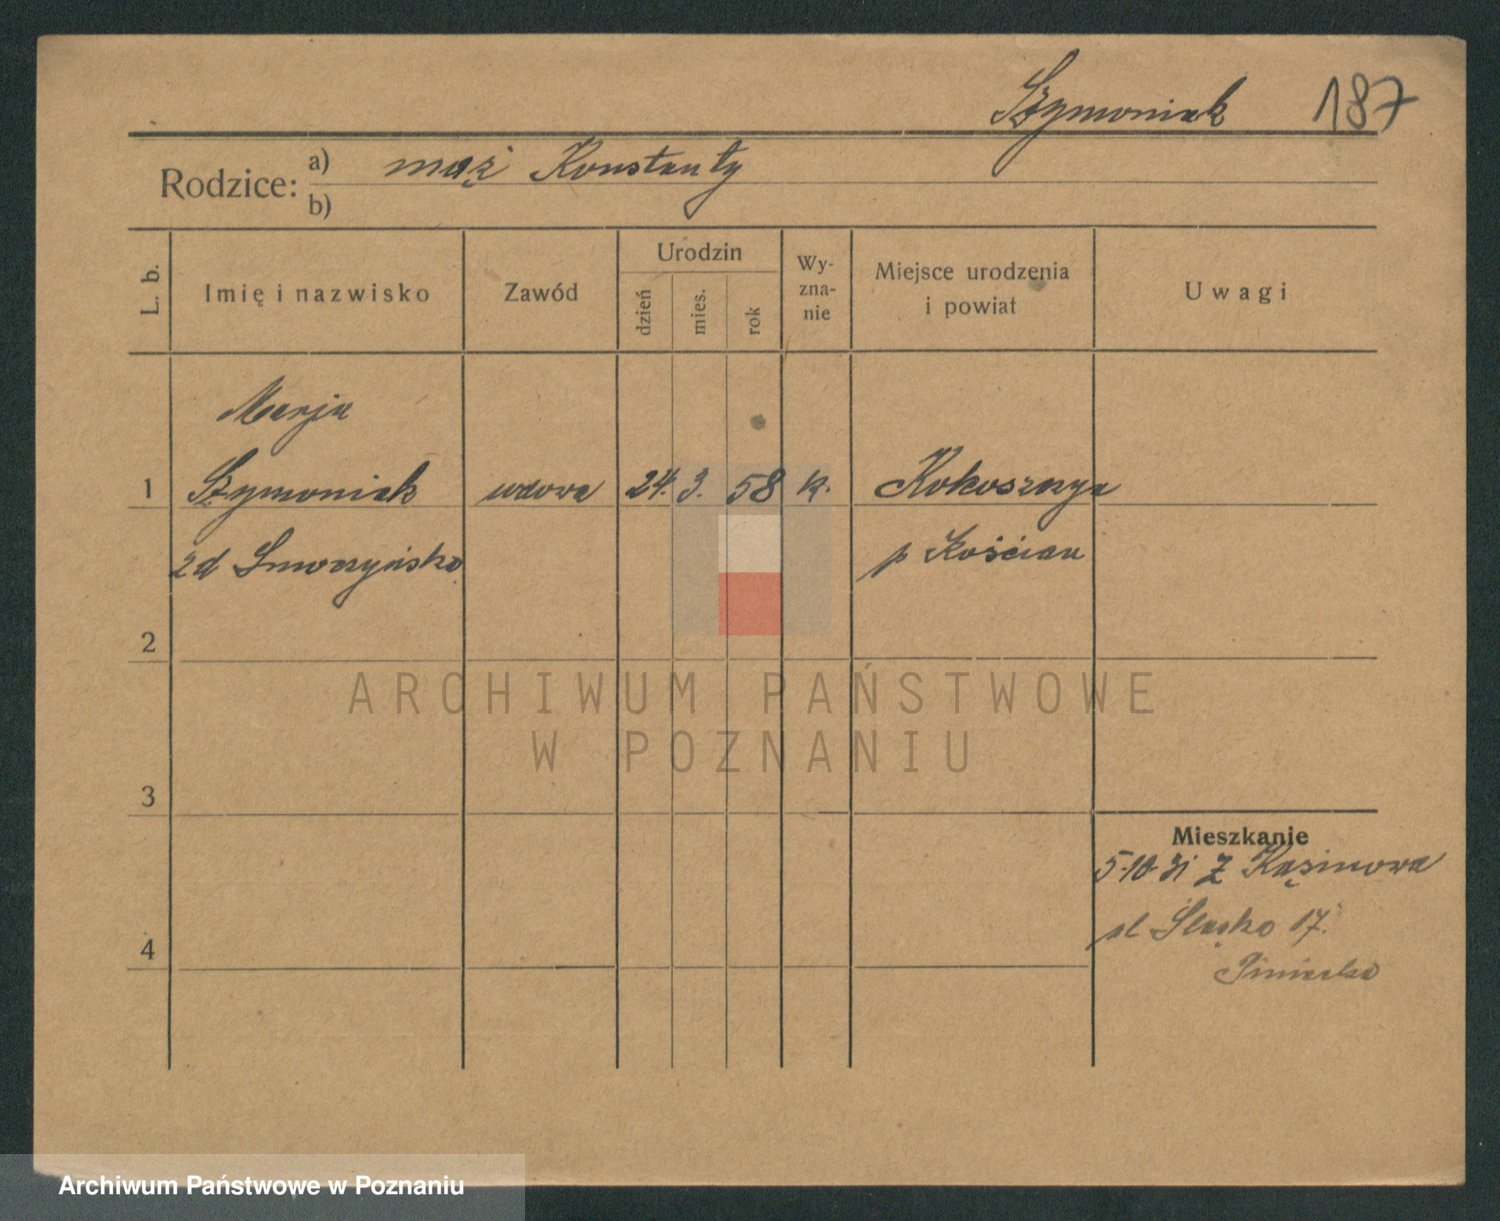 Szymoniak 187
Rodzice: a) mąż Konstanty
b)
L. b.
Imię i nazwisko
Zawód
Urodzin
dzień
mies.
rok
Wy-
zna-
nie
Miejsce urodzenia
i powiat
Uwagi
Marja
1 Szymoniak wdowa 24. 3. 58 k.
2d
p Kościan
2
ARCHIWUM PAŃSTWOWE
W POZNANIU
3
Mieszkanie
5.10.31 z
4
ul Śląska 17.
Archiwum Państwowe w Poznaniu